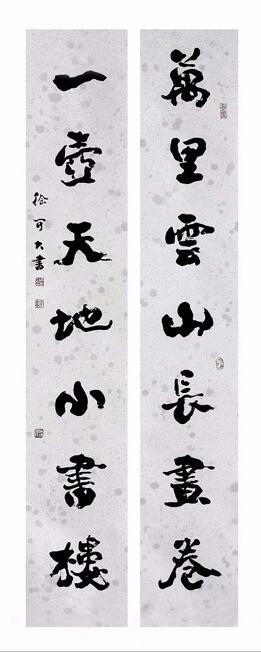 萬里雲山長畫卷
一壺天地小書樓
徐可大書